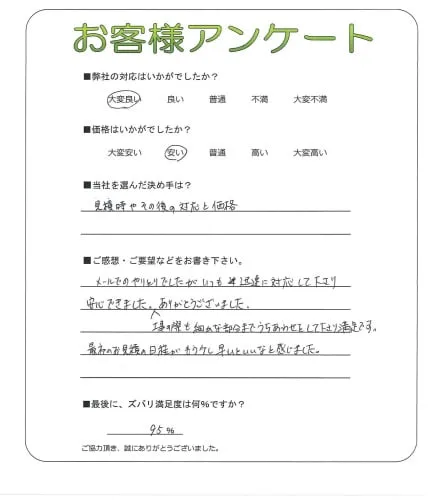 お客様アンケート
■弊社の対応はいかがでしたか?
大変良い 良い 普通 不満 大変不満
■価格はいかがでしたか?
大変安い 安い 普通 高い 大変高い
■当社を選んだ決め手は?
見積時やその後の対応と価格
■ご感想・ご要望などをお書き下さい。
メールでのやりとりでしたがいつも迅速に対応して下さり
安心できました。ありがとうございました。
工事の際も細かな部分までうちあわせをして下さり満足です。
最初のお見積の日程がもう少し早いといいなと感じました。
■最後に、ズバリ満足度は何%ですか?
95%
ご協力頂き、誠にありがとうございました。